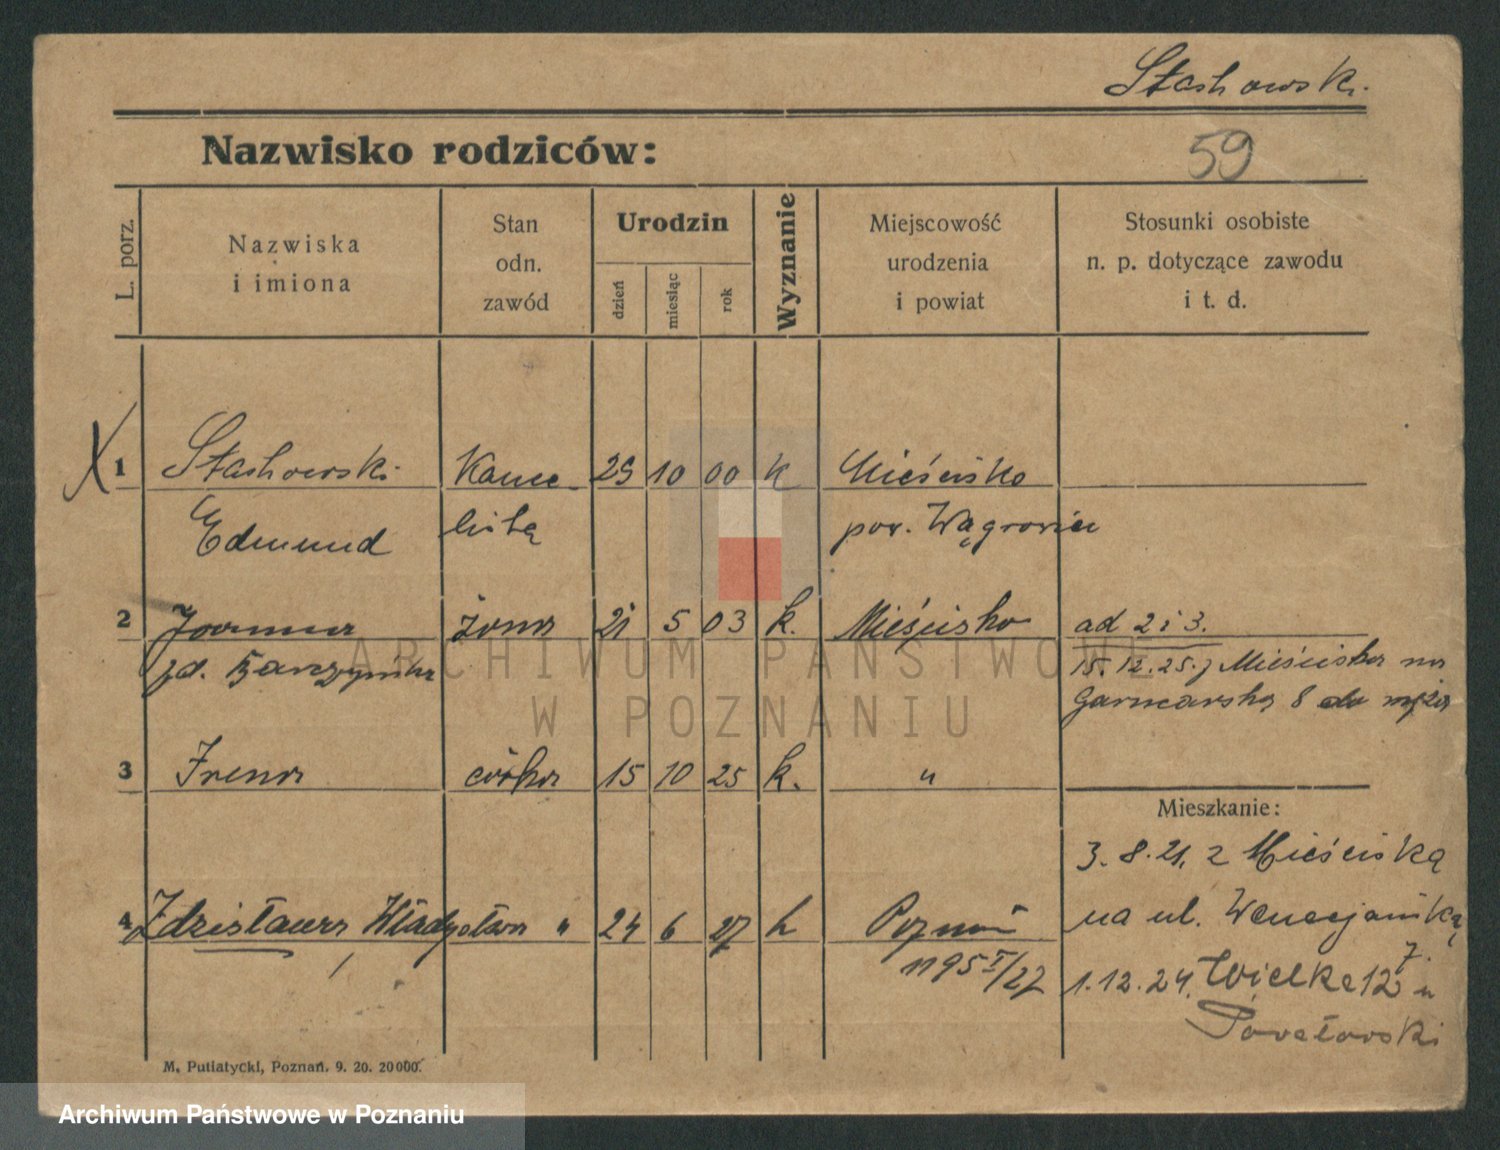 Stachowski.
59
Nazwisko rodziców:
L. porz.
Nazwiska
i imiona
Stan
odn.
zawód
Urodzin
dzień
miesiąc
rok
Wyznanie
Miejscowość
urodzenia
i powiat
Stosunki osobiste
n. p. dotyczące zawodu
i t. d.
X 1 Stachowski Kance- 29 10 00 k Mieścisko
Edmund listą pow. Wągrowiec
2 Joanna żona 21 5 03 k. Mieścisko ad 2 i 3.
15.12.25. z Mieściska na
Garncarską 8 do męża
3 Irena córka 15 10 25 k. "
Mieszkanie:
3.8.21. z Mieściską
na ul. Wenecjańską
7.
4 Zdzisława Władysława " 24 6 27 k Poznań
1195 I/27
1.12.24. Wielka 12 u
ARCHIWUM PAŃSTWOWE
W POZNANIU
M. Putiatycki, Poznań. 9. 20. 20000.
Archiwum Państwowe w Poznaniu